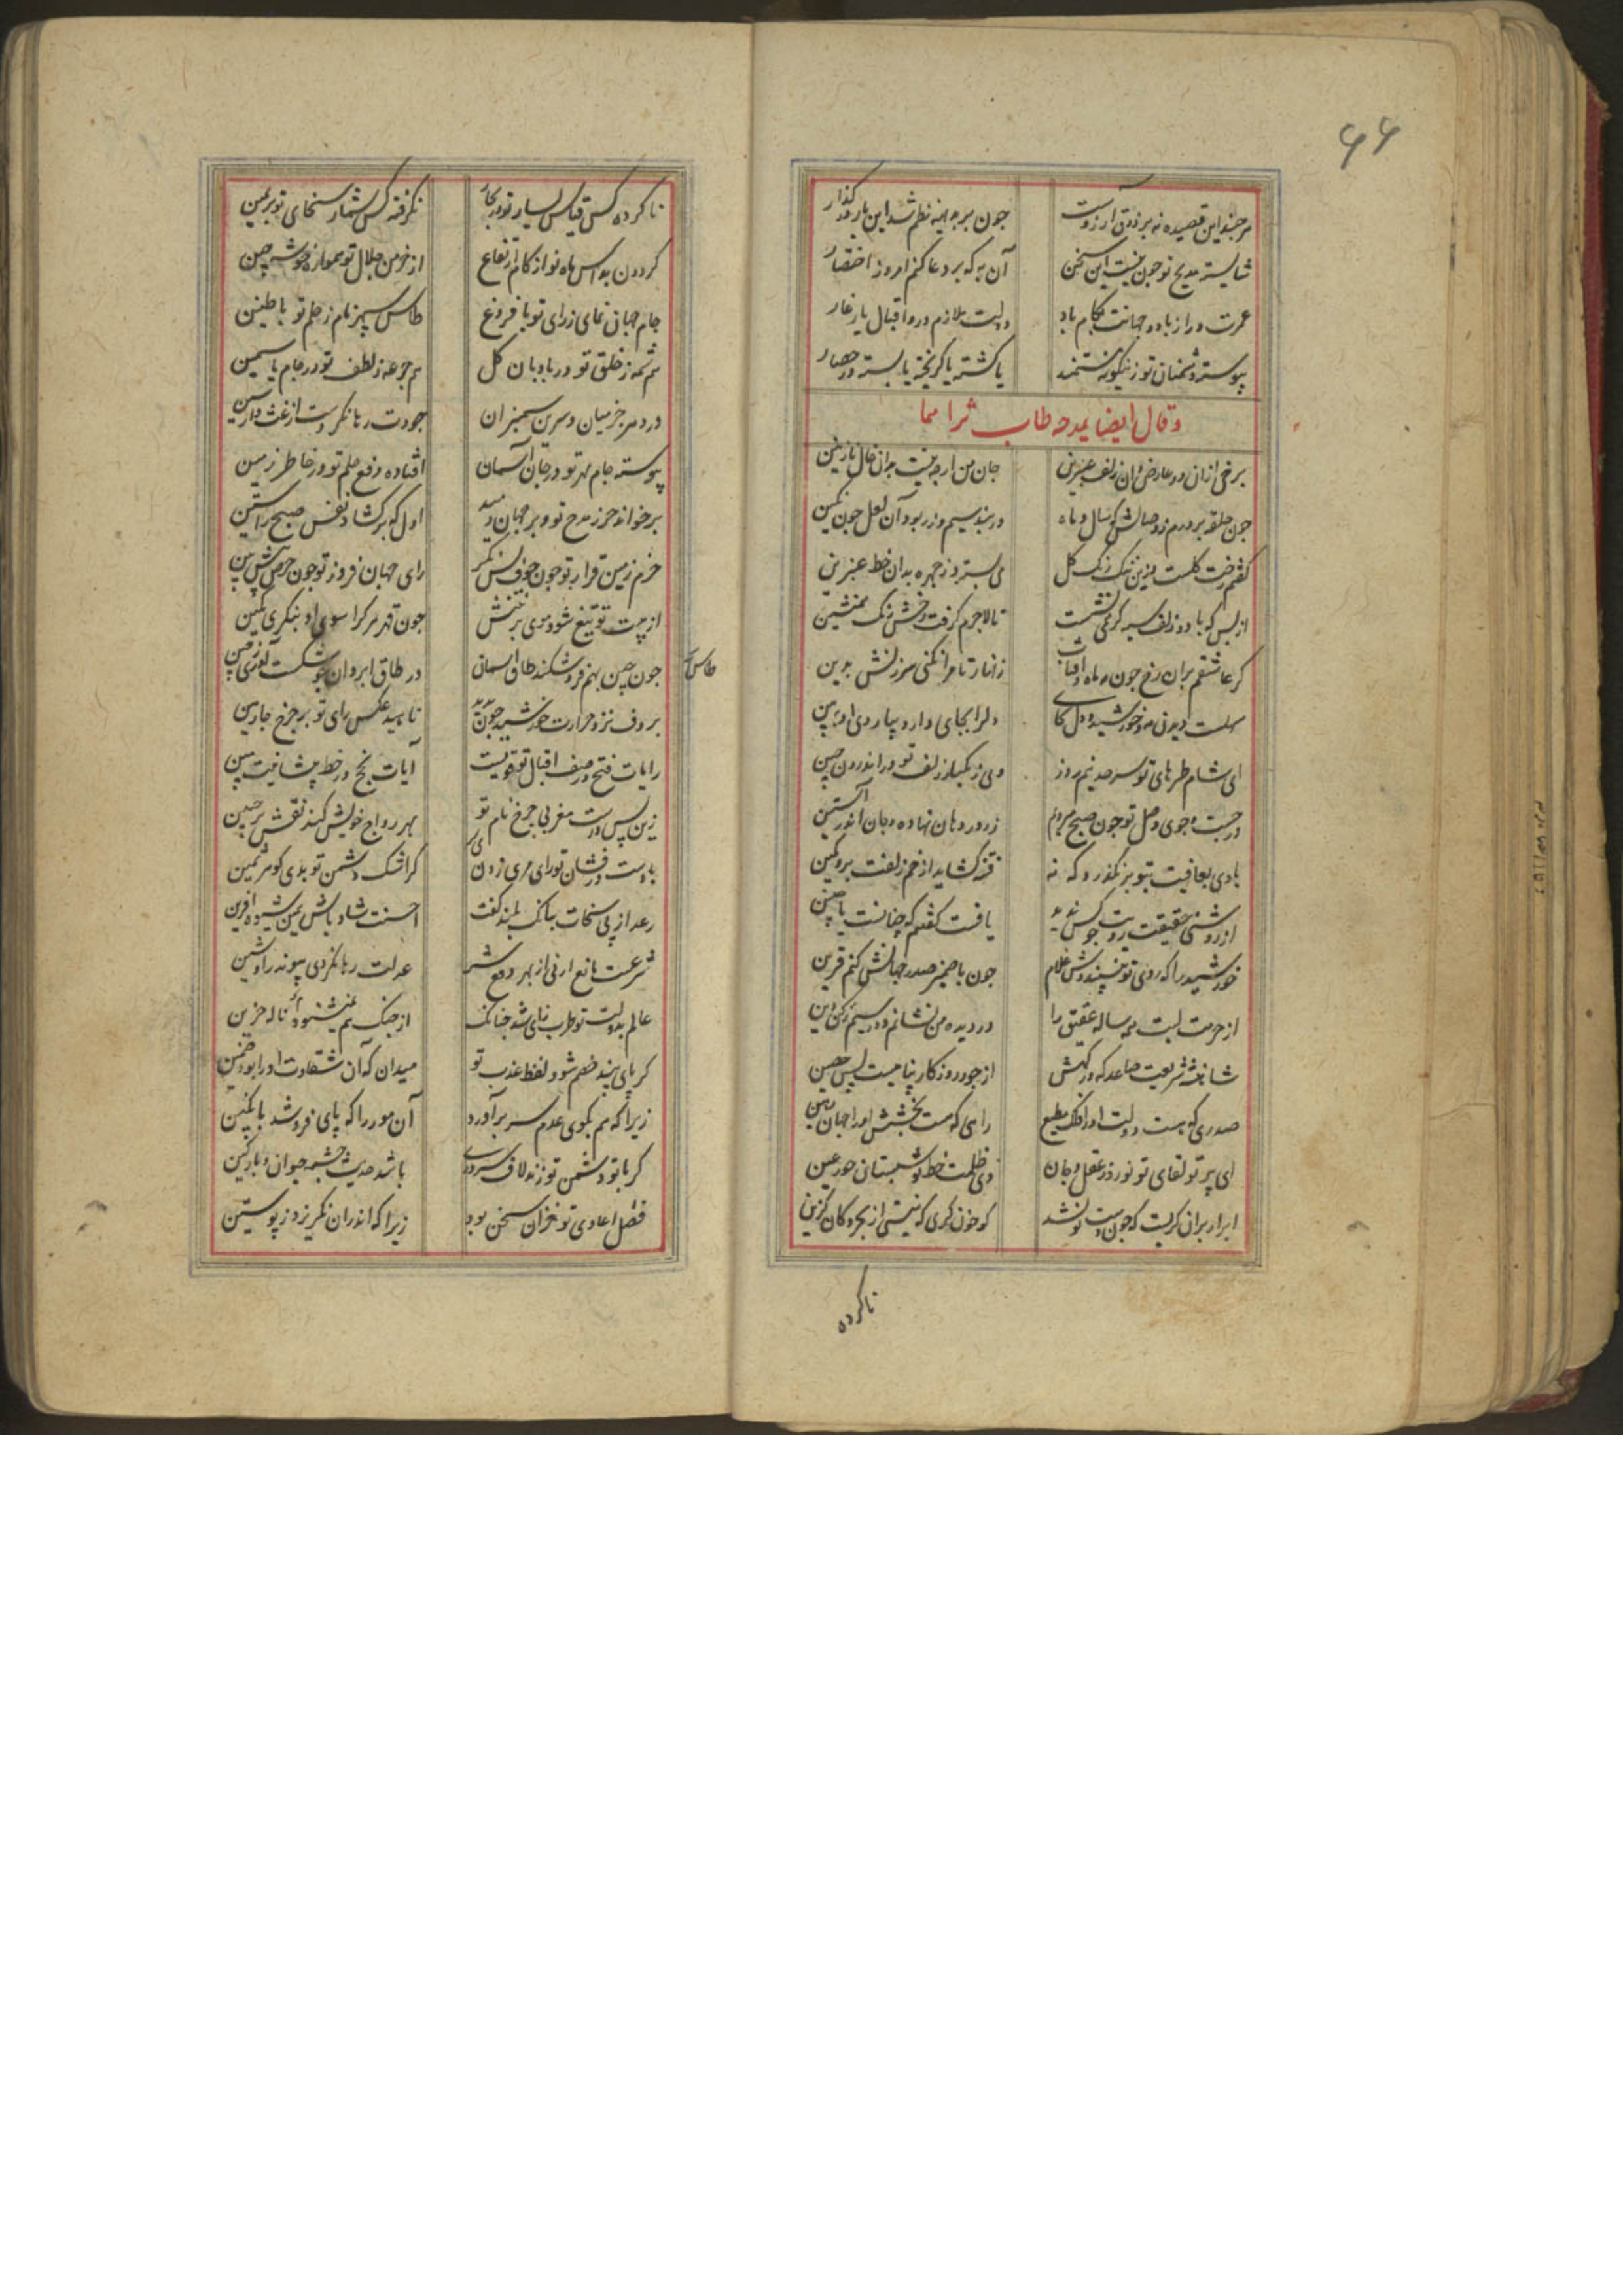 ۶۶
هر چند این قصیده نه بر ذوق آرزوست جون بر بدیهه نظم شد این بار در گذار
شایسته مدیح تو جون نیست این سخن آن به که بر دعا کنم امروز اختصار
عمرت دراز باد و جهانت بکام باد دولت ملازم در و اقبال یار غار
پیوسته دشمنان تو زینگونه مستمند یا کشته یا گریخته یا بسته در حصار
وقال ایضا یمدحه طاب ثراهما
برخی ازان دو عارض وان زلف عنبرین جان من ارچه نیست بدان خال نازنین
جون حلقه بر درم ز وصالش که سال و ماه در بند سیم و زر بود آن لعل جون نگین
گفتم رخت گلست بدین ننگ رنگ گل می بسترد ز چهره بدان خط عنبرین
از بس که با دو زلف سیه کر نمی نشست تا لاجرم گرفت رخش رنگ همنشین
گر عاشقم بران رخ جون ماه و آفتاب زنهار تا مرا نکنی سرزنش بدین
سهلست دیدن مه و خورشید و دل بجای دلرا بجای دار و بیا روی او ببین
ای شام طره‌های تو سر حد نیم روز وی زنگبار زلف تو در اندرون چین
در جست و جوی وصل تو جون صبح هر دم زر در دهان نهاده و جان اندر آستین
بادی بعافیت بتو بر نگذرد که نه فتنه گشاید از خم زلفت برو کمین
از روشنی حقیقت رویت جو کس ندید یافت گفتم که چنانست یا چنین
خورشید را که روی تو نپسندش غلام جون با ضمیر صدر جهانش کنم قرین
از حرمت لبت همه ساله عقیق را در دیده می نشانم و در سیم رکن دین
شاخ شریعت صاعد که درگهش از جور روزگار پناهیست بس حصین
صدری که هست دولت او را فلک مطیع رادی که هست بخشش او را جهان رهین
ای پرتو لقای تو نور دو عقل و جان وی ظلمت خط تو شبستان حور عین
ابر ار بران گریست که جون دست تو نشد کو خون گری که نیستی از بحر و کان گزین
ناکرده
ناکرده کس قیاس یسار تو در بحار نگرفته کس شمار سخای تو بر یمین
گردون بداس ماه نو از کام ارتفاع از خرمن جلال تو همواره خوشه چین
جام جهان نمای ز رای تو با فروغ طاس سپهر نام ز حلم تو با طنین
هم شمه ز خلق تو در بادبان گل هم جرعه ز لطف تو در جام یاسمین
در دهر جز میان و سرین سمنبران جودت رها نکرد ست از غث و از سمین
پیوسته جام مهر تو در جان آسمان افتاده وقع حلم تو در خاطر زمین
برخواند حرز مدح تو و بر جهان دمید اول که برگشاد نفس صبح راستین
حزم زمین قرار تو جون جوف پس نگر رای جهان فروز تو جون جرم پیش بین
از هیبت تو تیغ شود موی بر تنش جون قهر هر کرا سوی او بنگری بکین
جون چین بهم فرو شکند طاق آسمان در طاق ابروان جو شکست آوری ز چین
طاس
بر دف نزد حرارت خورشید جون بدید ناهید عکس رای تو بر چرخ چارمین
رایات فتح در صف اقبال تو قویست آیات نجح در خط پیشانیت مبین
زین پس درست مغربی چرخ نام تو بهر رواج خویش کند نقش بر جبین
با دست در فشان تو رای مری زدن گر اشک دشمن تو بدی گوهر ثمین
رعد از پی سخات ببانگ بلند گفت احسنت شاد باش یمین شیوه آفرین
شرعت مانع ارنی از بهر دفع شر عدلت رها نکردی پیوند را و شین
عالم بدولت تو طرب زای شد چنانک از چنگ هم نمی شنود ناله حزین
گر پای بند خصم شود لفظ عذب تو میدان که آن شقاوت او را بود ضمین
زیرا که هم بکوی عدم سر برآورد آن مور را که پای فرو شد بانگبین
گر با تو دشمن تو زند لاف سروری باشد حدیث چشمه حیوان و پارگین
فصل اعادی تو خزان سخن بود زیرا که اندران نگریزد ز پوستین